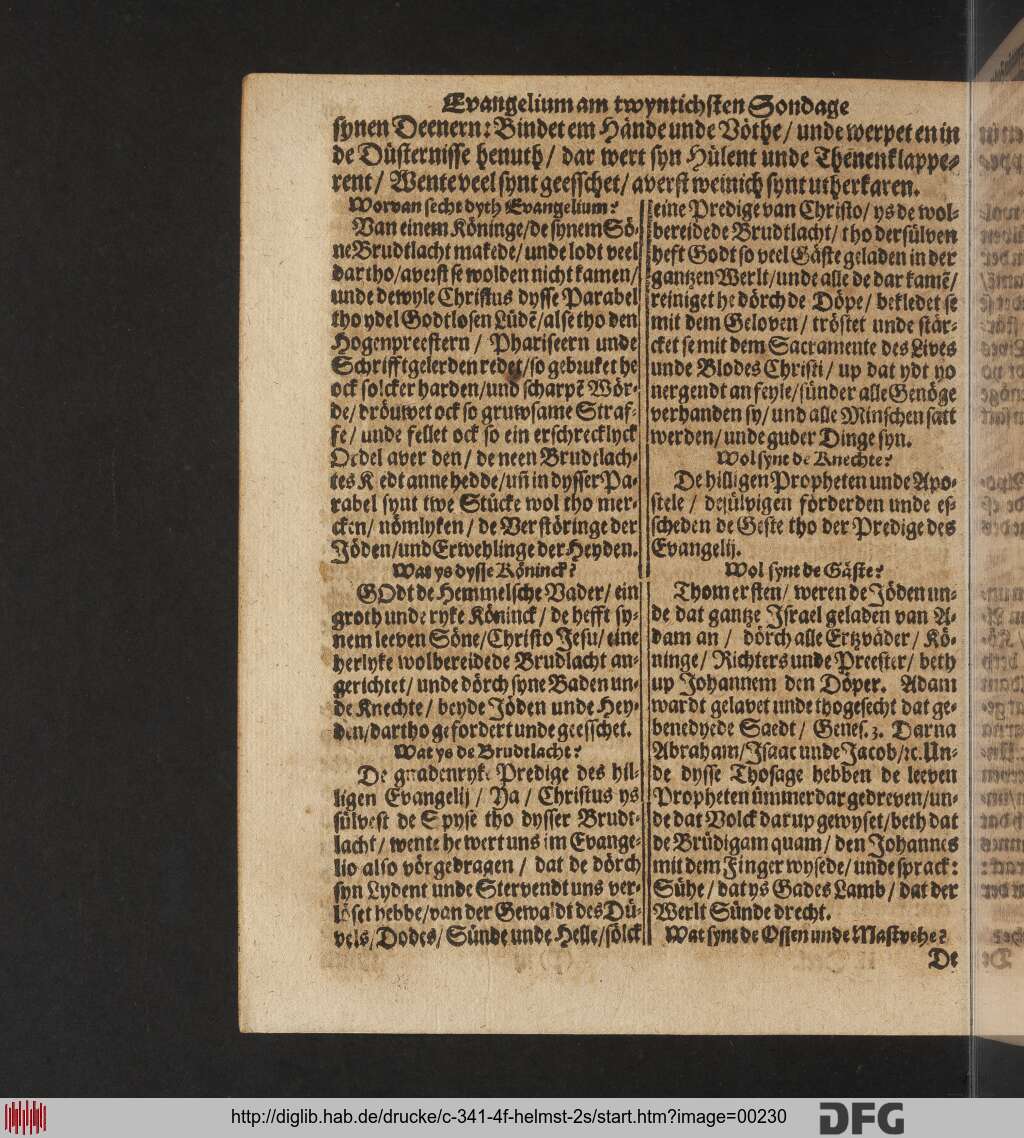 Evangelium am twyntichsten Sondage
synen Deenern: Bindet em Hände unde Vöthe/ unde werpet en in
de Düsternisse henuth/ dar wert syn Hülent unde Thenenklappe-
rent/ Wente veel synt geesschet/ averst weinich synt utherkaren.
Worvan secht dyth Evangelium?
Van einem Köninge/ de synem Sö-
ne Brudtlacht makede/ unde lodt veel
dar tho/ averst se wolden nicht kamen/
unde dewyle Christus dysse Parabel
tho ydel Godtlosen Lüdē/ alse tho den
Hogenpreestern/ Phariseern unde
Schrifftgelerden redet/ so gebruket he
ock solcker harden/ und scharpē Wör-
de/ dröuwet ock so gruwsame Straf-
fe/ unde fellet ock so ein erschrecklyck
Ordel aver den/ de neen Brudtlach-
tes Kledt anne hedde/ uñ in dysser Pa-
rabel synt twe Stücke wol tho mer-
cken/ nömlyken/ de Verstöringe der
Jöden/ und Erwehlinge der Heyden.
Wat ys dysse Köninck?
GOdt de Hemmelsche Vader/ ein
groth unde ryke Köninck/ de hefft sy-
nem leeven Söne/ Christo Jesu/ eine
herlyke wolbereidede Brudlacht an-
gerichtet/ unde dörch syne Baden un-
de Knechte/ beyde Jöden unde Hey-
den/ dartho gefordert unde geesschet.
Wat ys de Brudtlacht?
De gnadenryke Predige des hil-
ligen Evangelij/ Ya/ Christus ys
sülvest de Spyse tho dysser Brudt-
lacht/ wente he wert uns im Evange-
lio also vörgedragen/ dat de dörch
syn Lydent unde Stervendt uns ver-
löset hebbe/ van der Gewaldt des Dü-
vels/ Dodes/ Sünde unde Helle/ sölck
eine Predige van Christo/ ys de wol-
bereidede Brudtlacht/ tho dersülven
heft Godt so veel Gäste geladen in der
gantzen Werlt/ unde alle de dar kamē/
reiniget he dörch de Döpe/ bekledet se
mit dem Geloven/ tröstet unde stär-
cket se mit dem Sacramente des Lives
unde Blodes Christi/ up dat ydt yo
nergendt an feyle/ sünder alle Genöge
verhanden sy/ und alle Minschen satt
werden/ unde guder Dinge syn.
Wol synt de Knechte?
De hilligen Propheten unde Apo-
stele/ desülvigen förderden unde es-
scheden de Geste tho der Predige des
Evangelij.
Wol synt de Gäste?
Thom ersten/ weren de Jöden un-
de dat gantze Israel geladen van A-
dam an/ dörch alle Ertzväder/ Kö-
ninge/ Richters unde Preester/ beth
up Johannem den Döper. Adam
wardt gelavet unde thogesecht dat ge-
benedyede Saedt/ Genes. 3. Darna
Abraham/ Isaac unde Jacob/ ꝛc. Un-
de dysse Thosage hebben de leeven
Propheten ümmerdar gedreven/ un-
de dat Volck darup gewyset/ beth dat
de Brüdigam quam/ den Johannes
mit dem Finger wysede/ unde sprack:
Sühe/ dat ys Gades Lamb/ dat der
Werlt Sünde drecht.
Wat synt de Ossen unde Mastvehe?
De
http://diglib.hab.de/drucke/c-341-4f-helmst-2s/start.htm?image=00230
DFG